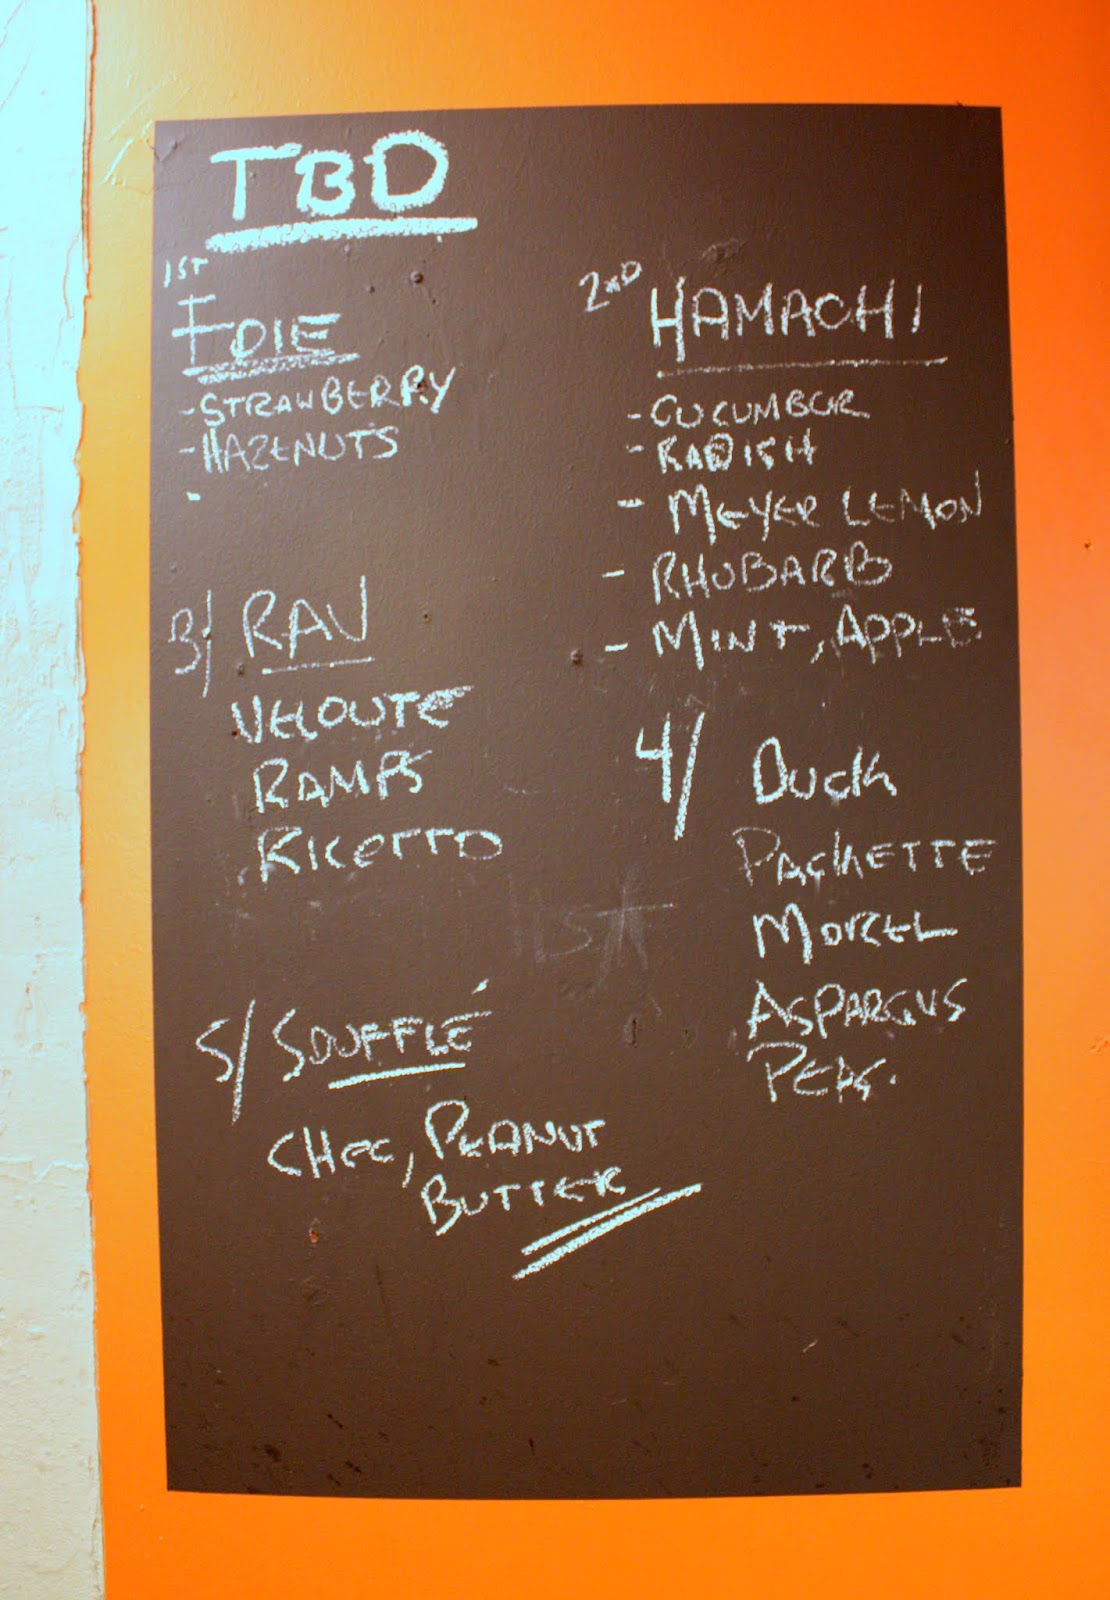 TBD
1ST
FOIE
-STRAWBERRY
-HAZENUTS
-
2ND HAMACHI
-CUCUMBER
-RADISH
- MEYER LEMON
- RHUBARB
- MINT, APPLE
3/ RAV
VELOUTE
RAMPS
RICOTTO
4/ DUCK
PACKETTE
MOREL
ASPARGUS
PEAS.
5/ SOUFFLÉ
CHOC, PEANUT
BUTTER